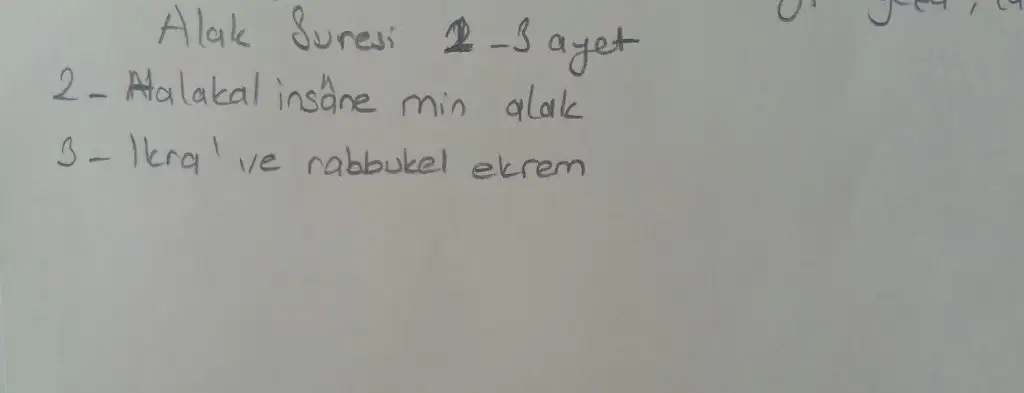 Alak Suresi 2-3 ayet
2- Halakal insâne min alak
3- Ikra' ve rabbukel ekrem